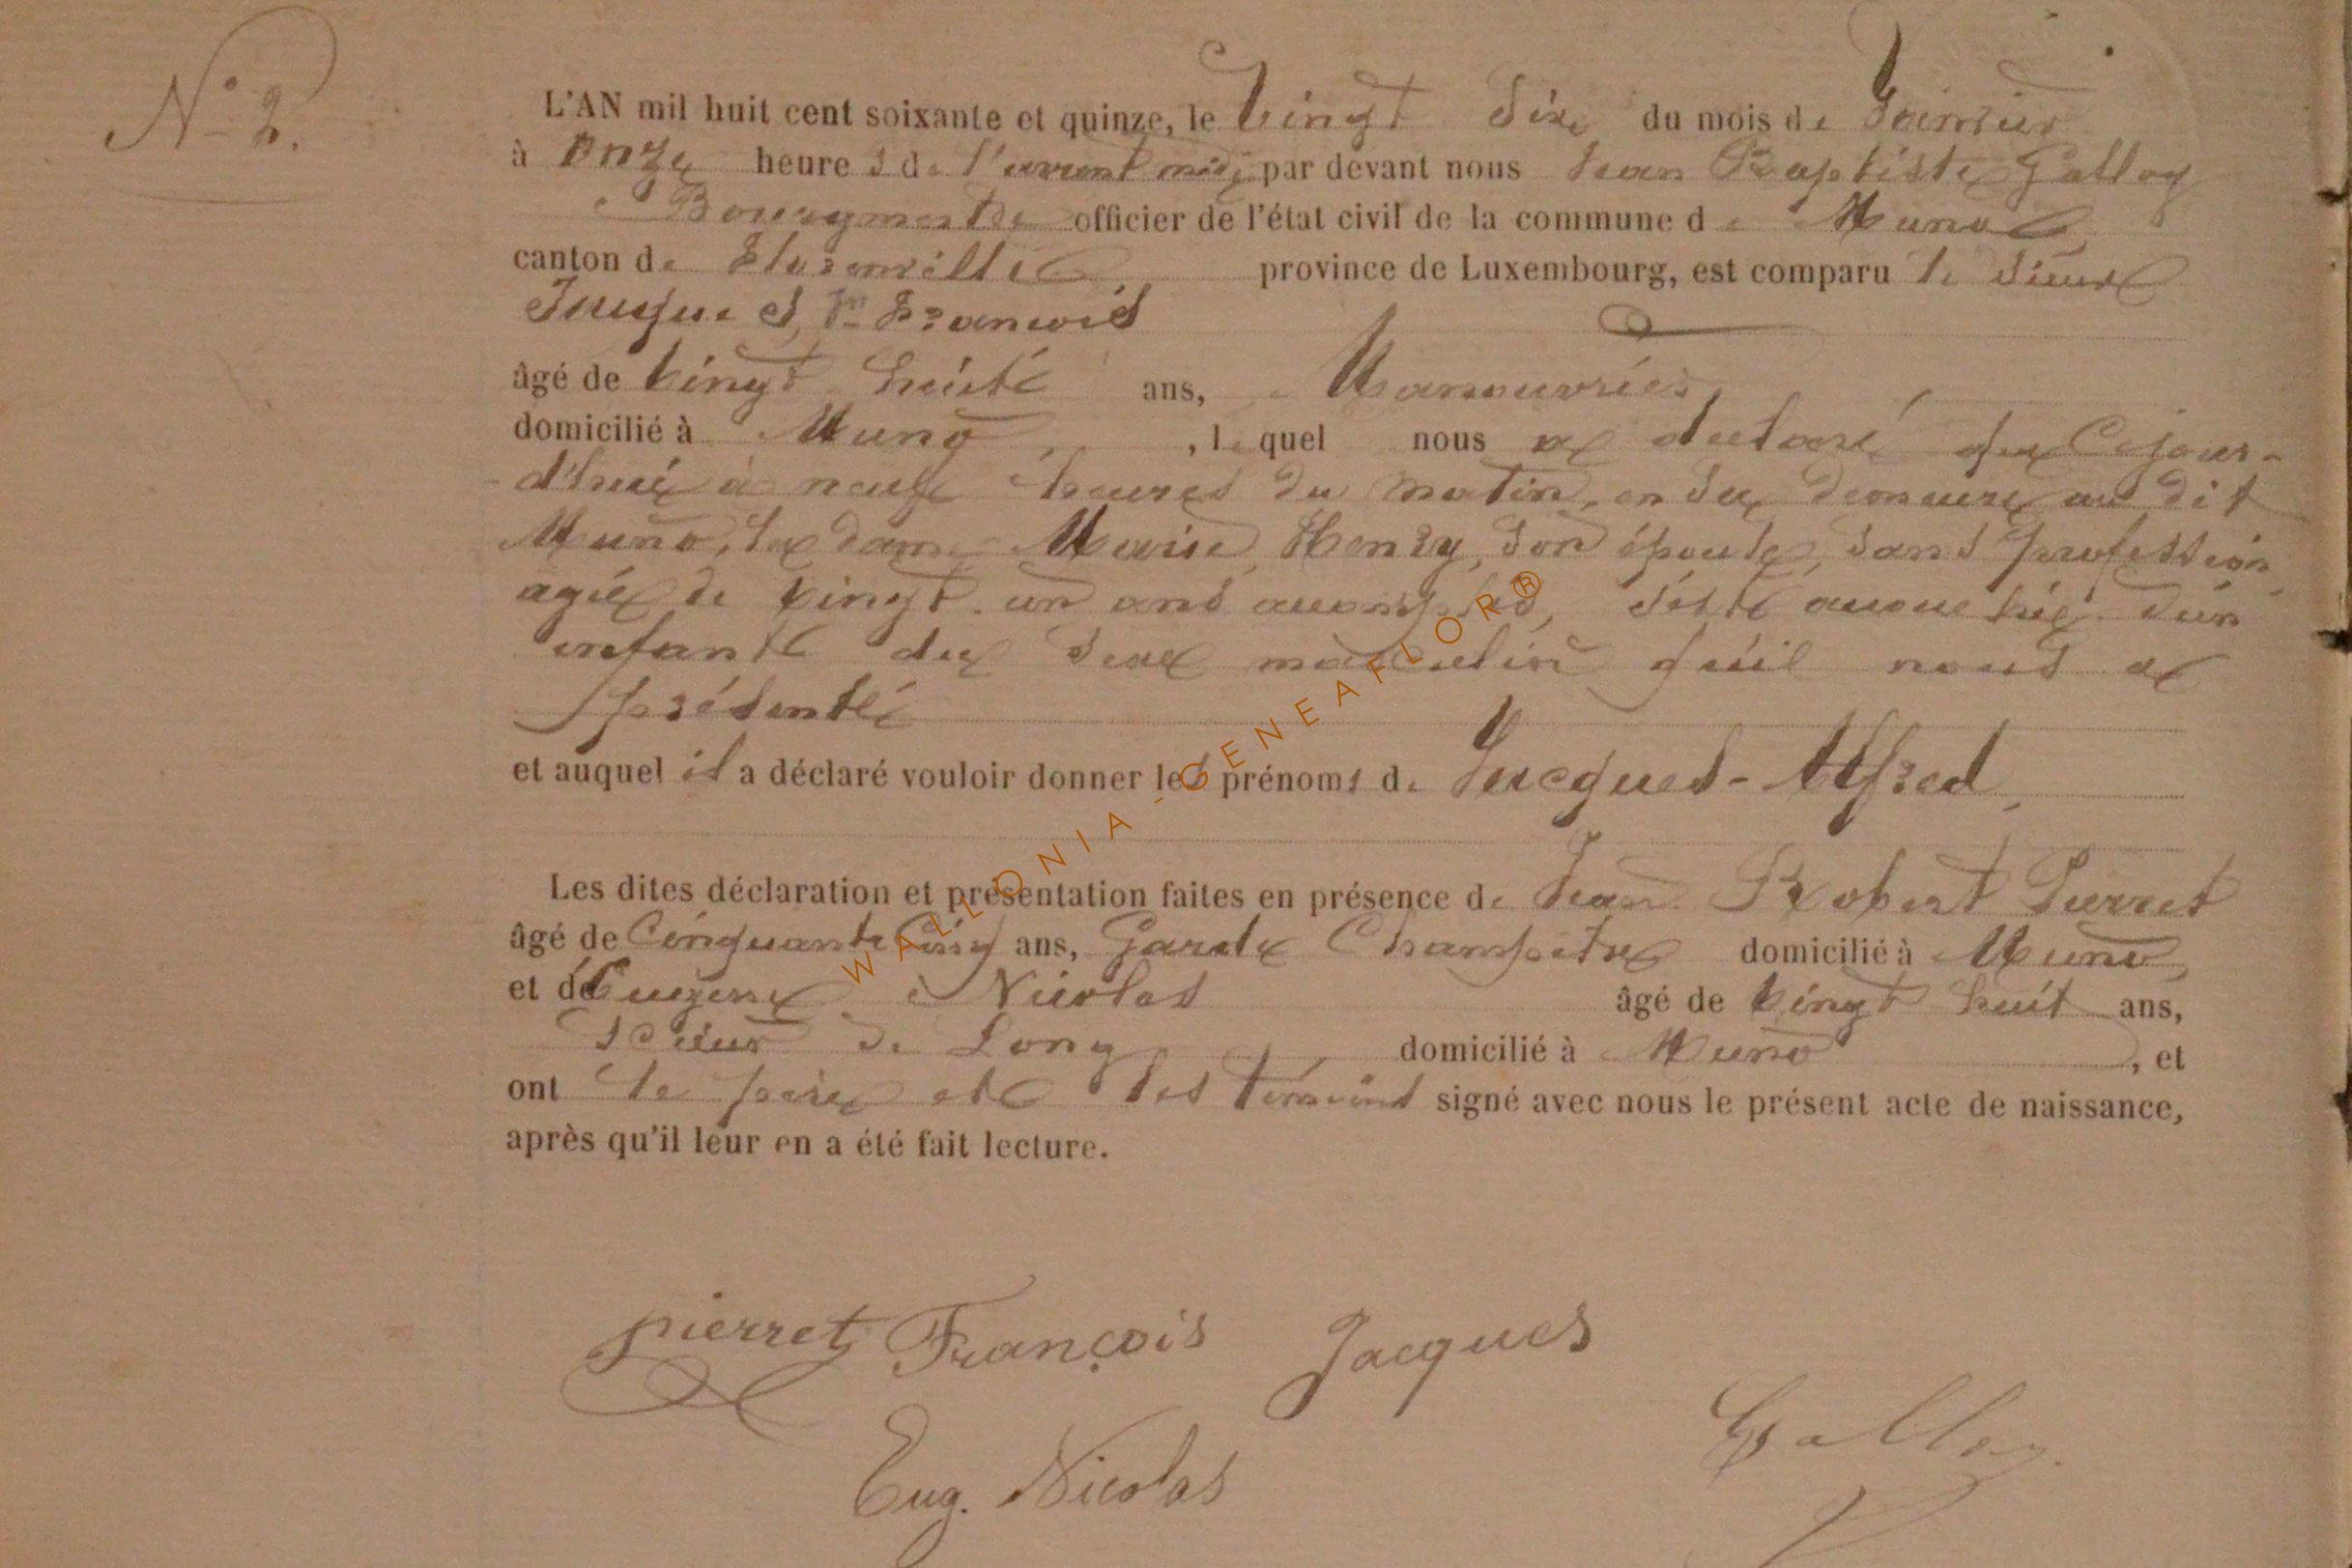 N° 2.
L'AN mil huit cent soixante et quinze, le Vingt Six du mois de Janvier
à Onze heures de l'avant midi par devant nous Jean Baptiste Galloy
Bourgmestre officier de l'état civil de la commune de Muno
canton de Florenville province de Luxembourg, est comparu le Sieur
Jacques, François
âgé de Vingt huit ans, Manouvrier
domicilié à Muno, lequel nous a declaré que Cejour-
d'hui à neuf heures du matin, en Sa demeure au dit
Muno, la dame Marie Henry, Son épouse, Sans profession
agée de Vingt un ans accomplis, S'est accouchée d'un
enfant du Sexe masculin qu'il nous a
présenté
et auquel il a déclaré vouloir donner les prénoms de Jacques-Alfred
Les dites déclaration et présentation faites en présence de Jean Robert Pierret
âgé de Cinquante Cinq ans, Garde Champêtre domicilié à Muno
et de Eugene Nicolas âgé de Vingt huit ans,
Scieur de Long domicilié à Muno, et
ont le père et les témoins signé avec nous le présent acte de naissance,
après qu'il leur en a été fait lecture.
pierret François Jacques
Eug. Nicolas Galloy
WALLONIA-GENEAFLOR®